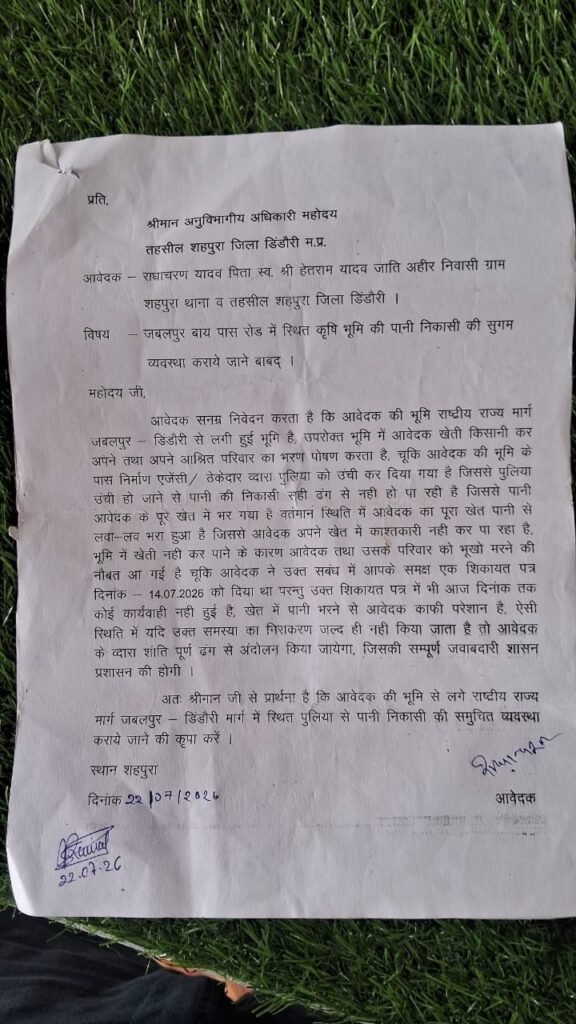 प्रति,
श्रीमान अनुविभागीय अधिकारी महोदय
तहसील शहपुरा जिला डिंडौरी म.प्र.
आवेदक – राधाचरण यादव पिता स्व. श्री हेतराम यादव जाति अहीर निवासी ग्राम
शहपुरा थाना व तहसील शहपुरा जिला डिंडौरी ।
विषय – जबलपुर बाय पास रोड में स्थित कृषि भूमि की पानी निकासी की सुगम
व्यवस्था कराये जाने बाबद् ।
महोदय जी,
आवेदक सनम्र निवेदन करता है कि आवेदक की भूमि राष्ट्रीय राज्य मार्ग
जबलपुर – डिंडौरी से लगी हुई भूमि है, उपरोक्त भूमि में आवेदक खेती किसानी कर
अपने तथा अपने आश्रित परिवार का भरण पोषण करता है, चूकि आवेदक की भूमि के
पास निर्माण एजेंसी/ ठेकेदार व्दारा पुलिया को उंची कर दिया गया है जिससे पुलिया
उंची हो जाने से पानी की निकासी सही ढंग से नही हो पा रही है जिससे पानी
आवेदक के पूरे खेत मे भर गया है वर्तमान स्थिति में आवेदक का पूरा खेत पानी से
लवा–लव भरा हुआ है जिससे आवेदक अपने खेत में काश्तकारी नही कर पा रहा है,
भूमि में खेती नही कर पाने के कारण आवेदक तथा उसके परिवार को भूखो मरने की
नौबत आ गई है चूकि आवेदक ने उक्त सबंध में आपके समक्ष एक शिकायत पत्र
दिनांक – 14.07.2026 को दिया था परन्तु उक्त शिकायत पत्र में भी आज दिनांक तक
कोई कार्यवाही नही हुई है, खेत में पानी भरने से आवेदक काफी परेशान है, ऐसी
स्थिति में यदि उक्त समस्या का निराकरण जल्द ही नही किया जाता है तो आवेदक
के व्दारा शांति पूर्ण ढंग से अंदोलन किया जायेगा, जिसकी सम्पूर्ण जवाबदारी शासन
प्रशासन की होगी ।
अतः श्रीमान जी से प्रार्थना है कि आवेदक की भूमि से लगे राष्ट्रीय राज्य
मार्ग जबलपुर – डिंडौरी मार्ग में स्थित पुलिया से पानी निकासी की समुचित व्यवस्था
कराये जाने की कृपा करें ।
स्थान शहपुरा
दिनांक 22/07/2026
आवेदक
22.07.26